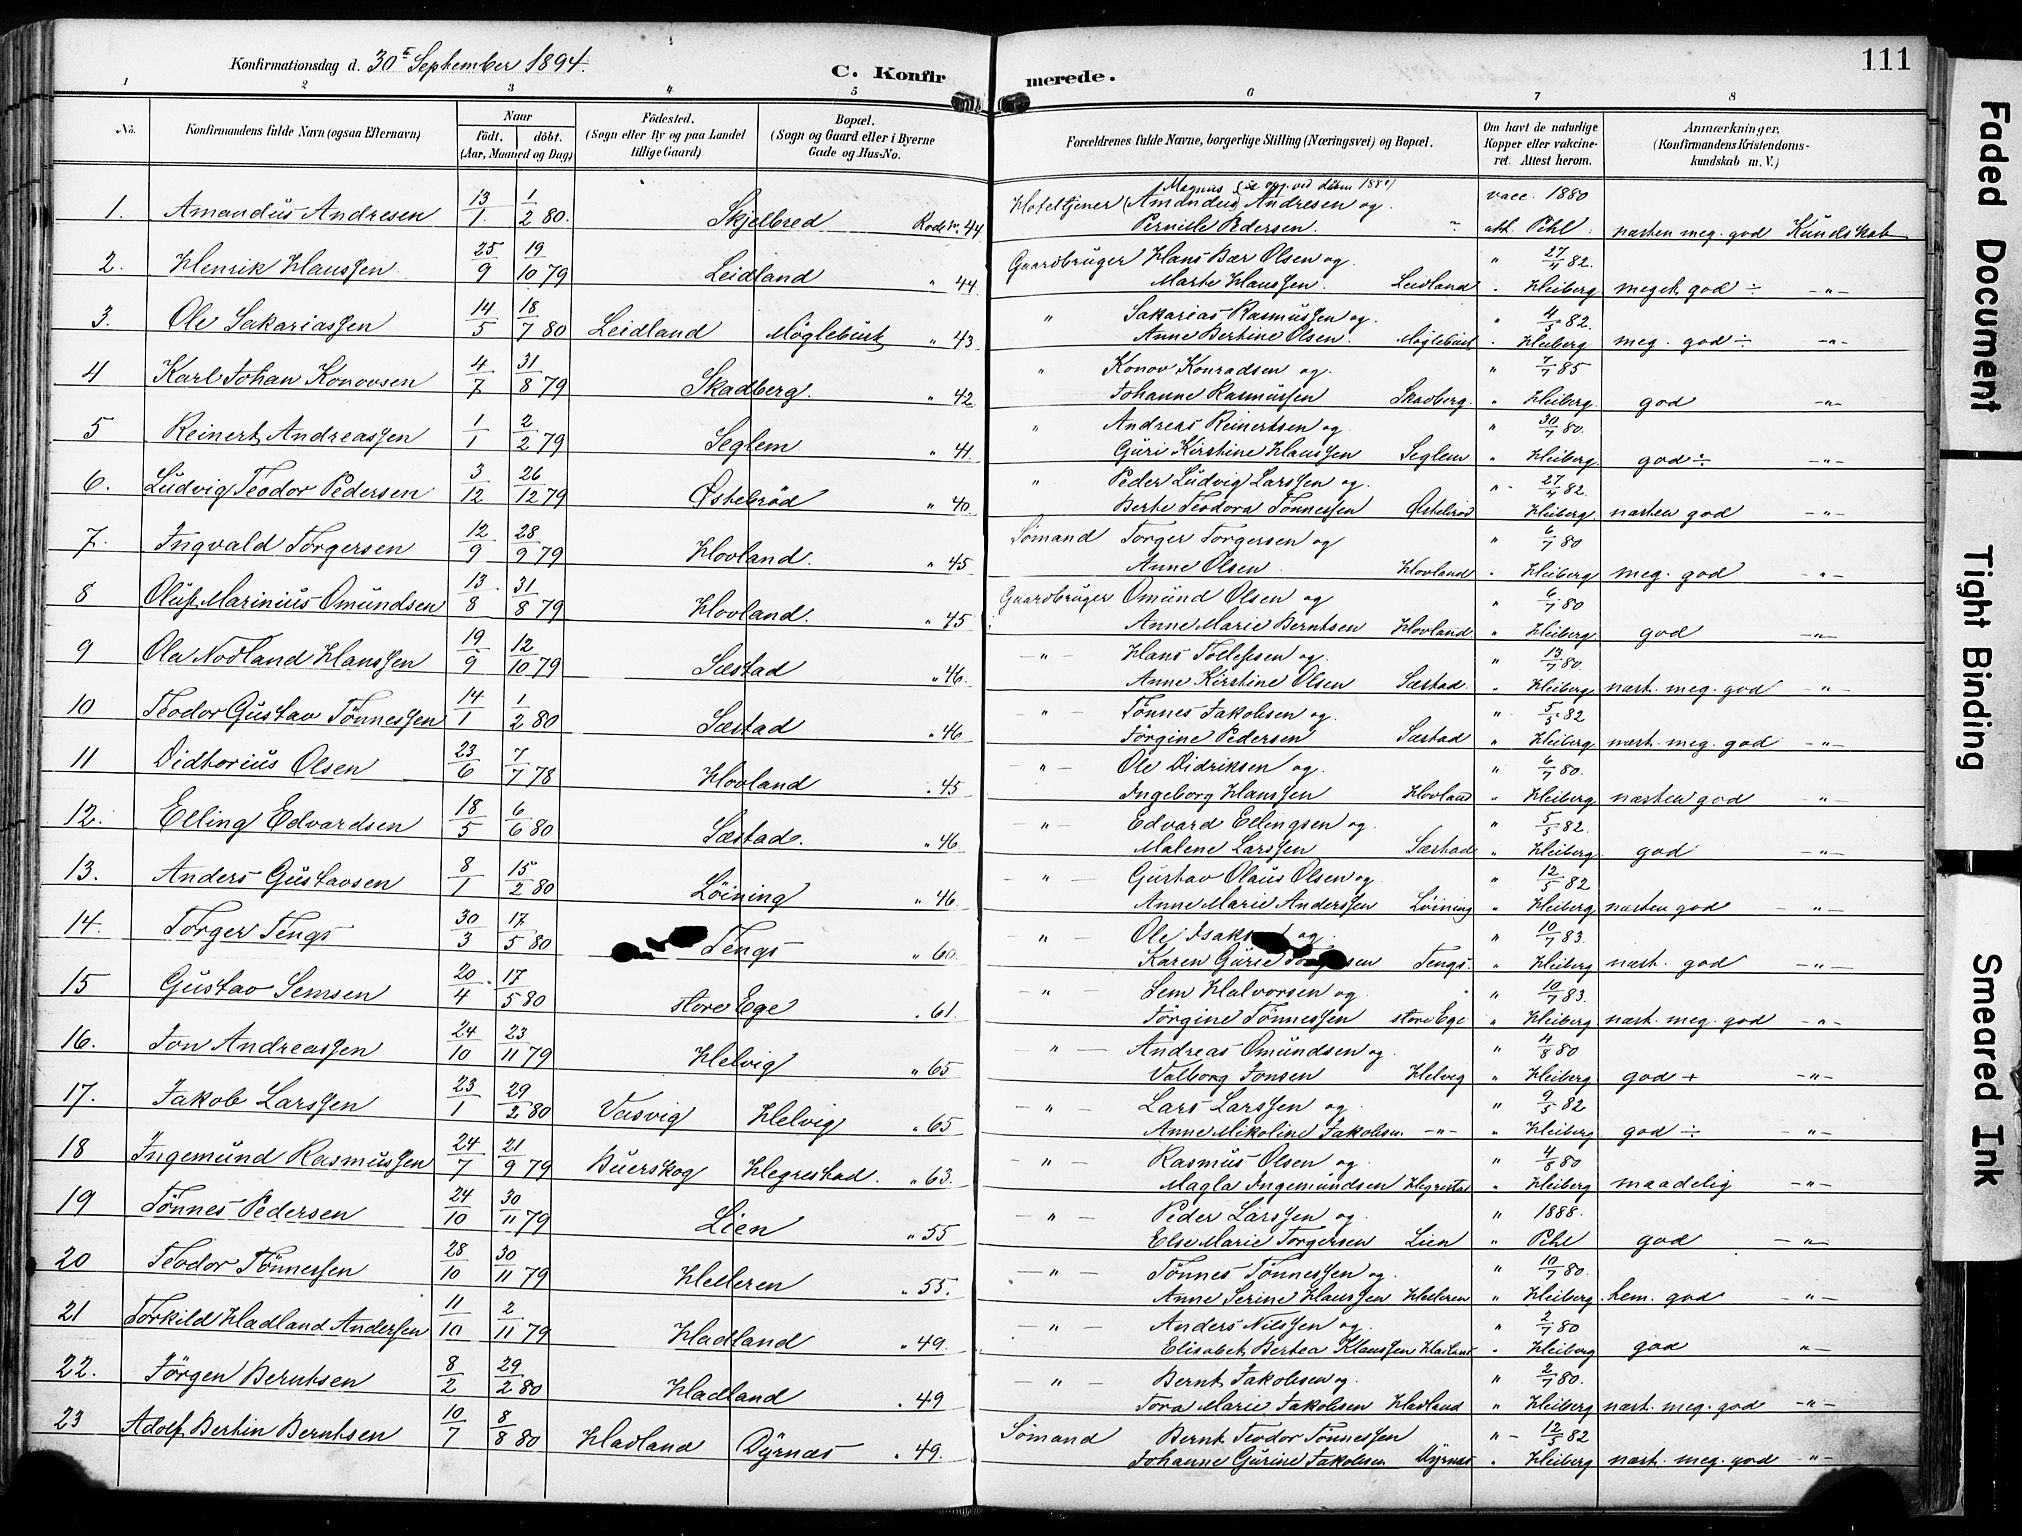 Konfirmationsdag d. 30te September 1894.
C. Konfirmerede.
111
1 2 3 4 5 6 7 8
No.
Konfirmandens fulde Navn (ogsaa Efternavn)
Naar
født. døbt.
(Aar, Maaned og Dag)
Fødested.
(Sogn eller By og paa Landet tillige Gaard)
Bopæl.
(Sogn og Gaard eller i Byerne Gade og Hus-No.
Forældrenes fulde Navne, borgerlige Stilling (Næringsvei) og Bopæl.
Om havt de naturlige Kopper eller vakcineret. Attest herom.
Anmærkninger.
(Konfirmandens Kristendomskundskab m. V.)
1. Amandus Andresen 13/1 1/2 80. Skjelbred Rode No. 44 Hoteltjener (Amandus) Magnus Andresen og vacc. 1880
Pernille Pedersen. " att. Pihl. næsten meg. god Kundskab
2. Henrik Hanssen. 25/9 19/10 79 Leidland " 44 Gaardbruger Hans Bær Olsen og " 27/4 82.
Marte Hanssen. Leidland " Heiberg meget god ÷ -"-
3. Ole Sakariassen 14/5 18/7 80 Leidland Møglebust " 43 " Sakarias Rasmussen og " 4/5 82.
Anne Bertine Olsen. Møglebust " Heiberg meg. god ÷ -"-
4 Karl Johan Konovsen 4/7 31/8 79 Skadberg. " 42 " Konov Konradsen og " 7/7 85
Johanne Rasmussen Skadberg. " Heiberg. god -"-
5 Reinert Andreassen 1/1 2/2 79 Seglem " 41 " Andreas Reinertsen og " 30/7 80.
Guri Kirstine Hanssen Seglem " Heiberg. god ÷ -"-
6. Ludvig Teodor Pedersen 3/12 26/12 79 Østebrød " 40. " Peder Ludvig Larssen og " 27/4 82.
Berte Teodora Tønnessen Østebrød " Heiberg. næsten god -"-
7. Ingvald Torgersen 12/9 28/9 79 Hovland. " 45 Sømand Torger Torgersen og " 6/7 80
Anne Olsen. Hovland " Heiberg meg. god -"-
8 Oluf Marinius Omundsen 13/8 31/8 79 Hovland. " 45 Gaardbruger Omund Olsen og " 6/7 80
Anne Marie Berntsen Hovland " Heiberg god -"-
9 Ole Nodland Hanssen 19/9 12/10 79 Sæstad " 46. -"- Hans Tollefsen og " 13/7 80.
Anne Kirstine Olsen Sæstad. " Heiberg næst. meg. god -"-
10 Teodor Gustav Tønnessen 14/1 1/2 80 Sæstad " 46 -"- Tønnes Jakobsen og " 5/5 82
Jørgine Pedersen Sæstad " Heiberg næst. meg. god -"-
11 Didtorius Olsen 23/6 7/7 78 Hovland " 45 -"- Ole Didriksen og " 6/7 80.
Ingeborg Hanssen Hovland " Heiberg næsten god -"-
12. Elling Edvardsen 18/5 6/6 80 Sæstad. " 46 -"- Edvard Ellingsen og " 5/5 82.
Malene Larssen Sæstad " Heiberg god -"-
13. Anders Gustavsen 8/1 15/2 80 Løining " 46 -"- Gustav Olaus Olsen og " 12/5 82
Anne Marie Anderssen Løining " Heiberg næsten god -"-
14. Torger Tengs 30/3 17/5 80 Tengs " 60. -"- Ole og " 10/7 83.
Karen Gurie Tengs. " Heiberg næst. god -"-
15 Gustav Semsen 20/4 17/5 80 store Ege " 61. -"- Sem Halvorsen og " 10/7 83.
Jørgine Tønnessen store Ege " Heiberg næst. meg. god -"-
16. Jon Andreassen 24/10 23/11 79 Helvig " 65 -"- Andreas Omundsen og " 4/8 80
Valborg Jonsen Helvig " Heiberg god + -"-
17. Jakob Larssen 23/1 29/2 80 Vasvig Helvig " 65 -"- Lars Larssen og " 9/5 82
Anne Mikoline Jakobsen -"- " Heiberg god ÷ -"-
18 Ingemund Rasmussen 24/7 21/9 79 Buerskog Hegrestad. " 63. -"- Rasmus Olsen og " 4/8 80
Magla Ingemundsen Hegrestad " Heiberg maadelig -"-
19 Tønnes Pedersen 24/10 30/11 79 Lien " 55 -"- Peder Larssen og " 1888.
Else Marie Torgersen Lien " Pihl god -"-
20 Teodor Tønnessen 28/10 30/11 79 Helleren " 55. -"- Tønnes Tønnessen og " 10/7 80.
Anne Serine Hanssen Helleren " Heiberg. tem. god -"-
21 Torkild Hadland Andersen 11/10 2/11 79 Hadland " 49. -"- Anders Nilssen og " 2/7 80
Elisabet Bertea Klaussen Hadland " Heiberg god "-
22. Jørgen Berntsen 8/2 29/2 80 Hadland " 49 -"- Bernt Jakobsen og " 2/7 80.
Tora Marie Jakobsen Hadland " Heiberg næst. meg. god -"-
23 Adolf Bertin Berntsen 10/7 8/8 80 Hadland Dyrnæs " 49. Sømand Bernt Teodor Tønnessen " 12/5 82
Johanne Gurine Jakobsen Dyrnæs " Heiberg næst. meg. god -"-
Faded Document
Tight Binding
Smeared Ink